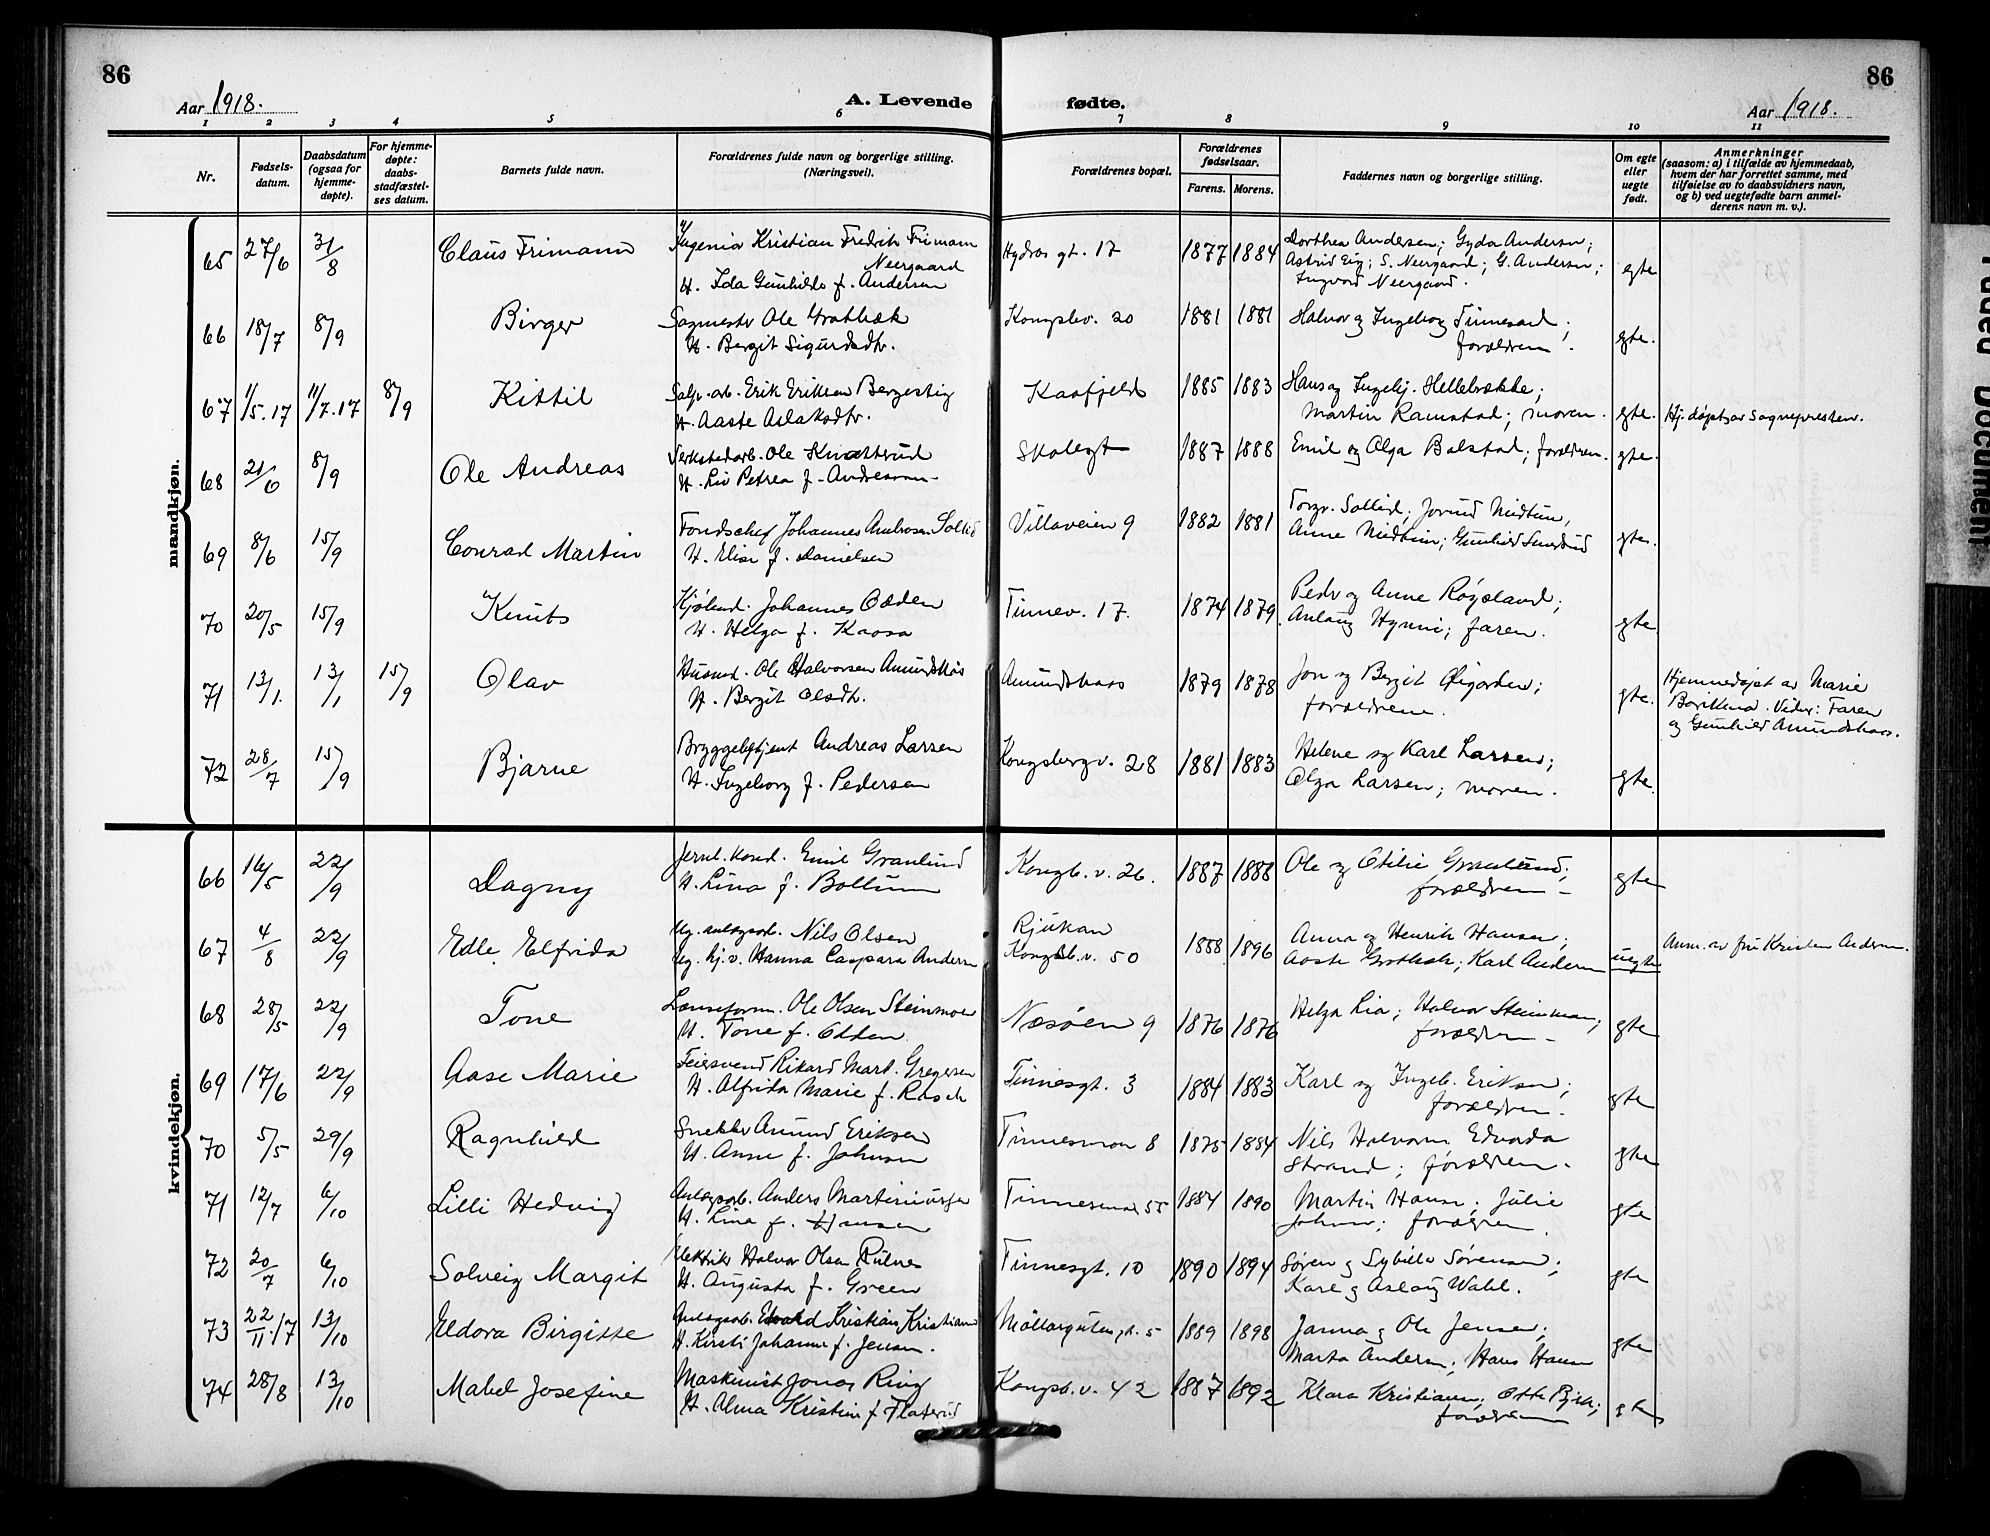 86
86
Aar 1918.
A. Levende fødte.
Aar 1918.
1 2 3 4 5 6 7 8 9 10 11
Nr.
Fødsels-
datum.
Daabsdatum
(ogsaa for
hjemme-
døpte).
For hjemme-
døpte:
daabs-
stadfæstel-
ses datum.
Barnets fulde navn.
Forældrenes fulde navn og borgerlige stilling.
(Næringsvei).
Forældrenes bopæl.
Forældrenes
fødselsaar.
Farens. Morens.
Faddernes navn og borgerlige stilling.
Om egte
eller
uegte
født.
Anmerkninger
(saasom: a) i tilfælde av hjemmedaab,
hvem der har forrettet samme, med
tilføielse av to daabsvidners navn,
og b) ved uegtefødte barn anmel-
derens navn m. v.).
mandkjøn.
65 27/6 31/8 Claus Frimann Ingeniør Kristian Fredrik Frimann
Neergaard
H. Ida Gunhilde f. Andersen
Hydros gt. 17 1877 1884 Dorthea Andersen; Gyda Andersen;
Astrid Eig; S. Neergaard; G. Andersen;
Ingvard Neergaard. egte
66 18/7 8/9 Birger Sagmester Ole Grotbæk
H. Bergit Sigurdsdtr.
Kongsbv. 20 1881 1881 Halvor og Ingeborg Tinnesand;
forældrene. egte.
67 1/5.17 11/7.17 8/9 Kittil Salp. arb. Erik Eriksen Bergestig
H. Aaste Aslaksdtr.
Kaafjeld 1885 1883 Hans og Ingebj. Hellebække;
Martin Ramstad; moren. egte. Hj. døpt av Sognepresten.
68 21/6 8/9 Ole Andreas Verkstedarb. Ole Knatterud
H. Liv Petrea f. Andresen
Skolegt 1887 1888 Emil og Olga Bolstad; forældren. egte.
69 8/6 15/9 Conrad Martin Fondschef Johannes Ambrosen Sollid
H. Elise f. Danielsen
Villaveien 9 1882 1881 Torgr. Sollid; Jorund Midtun,
Anne Midtun; Gunhild egte.
70 20/5 15/9 Knut Kjøbmd. Johannes Odden
H. Helga f. Kaasa
Tinnev. 17. 1874 1879. Peder og Anne Røysland;
Anlaug Hynni; faren. egte.
71 13/1. 13/1 15/9 Olav Husmd. Ole Halvorsen Amundshus
H. Bergit Olsdtr.
Amundshaas 1879 1878 Jon og Bergit Øigarden;
forældrene. egte. Hjemmedøpt av Marie
Vidner: Faren
og Gunhild Amundshaas.
72 28/7 15/9 Bjarne Bryggebetjent Andreas Larsen
H. Ingeborg f. Pedersen
Kongsbergv. 28 1881 1883 Helene og Karl Larsen;
Olga Larsen; moren. egte.
kvindekjøn.
66 16/5 22/9 Dagny Jernb. kond. Emil Granlund
H. Lina f. Bollum
Kongb. v. 26. 1887 1888 Ole og Otilie Granlund;
forældren egte
67 4/8 22/9 Edle Elfrida Ug. anlægsarb. Nils Olsen
Ug. hj. v. Hanna Caspara Andersen
Rjukan
Kongsb. v. 50 1888 1896 Anna og Henrik Hansen;
Aaste Grotbæk; Karl Andersen uegte Anm. av fru Kristen Andersen.
68 28/5 22/9 Tone Lænseform. Ole Olsen Steinmoen
H. Tone f. Odden
Næsøen 9 1876 1876 Helga Lia; Halvor Steinmoen;
forældren egte
69 17/6 22/9 Aase Marie Feiersvend Rikard Mart. Gregersen
H. Alfrida Marie f. Rasch
Tinnesgt. 3 1884 1883 Karl og Ingeb. Eriksen;
forældren. egte
70 5/5 29/9 Ragnhild Snekker Amund Eriksen
H. Anne f. Johnsen
Tinnesmoen 8 1875 1884 Nils Halvorsen Edvarda
Strand; forældren. egte
71 12/7 6/10 Lilli Hedvig Anlægsarb. Anders Martiniussen
H. Lina f. Hansen
Tinnesmoen 55 1884 1890 Martin Hansen; Julie
Johnsen; forældren egte
72 20/7 6/10 Solveig Margit Elektriker Halvor Olsen Rulnes
H. Augusta f. Green
Tinnesgt. 10 1890 1894 Søren og Sybille Sørensen;
Karl og Aslaug Wahl. egte
73 22/11 17 13/10 Eldora Birgitte Anlægsarb. Edvard Kristian Kristiansen
H. Kirsti Johanne f. Jensen.
Møllargutens gt. 5 1889 1898 Janna og Ole Jensen;
Marta Andersen; Hans Hansen egte
74 28/8 13/10 Mabel Josefine Maskinist Jonas Ring
H. Alma Kristine f. Flaterud
Kongsb. v. 42 1887 1892 Klara Kristiansen; Otto Bjerk;
forældren egte